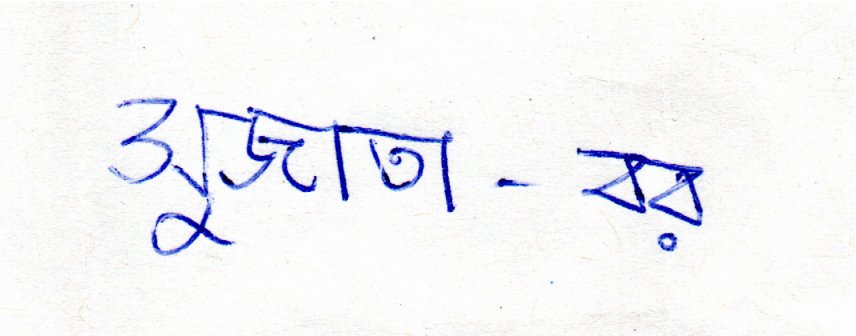 সুজাতা - বর